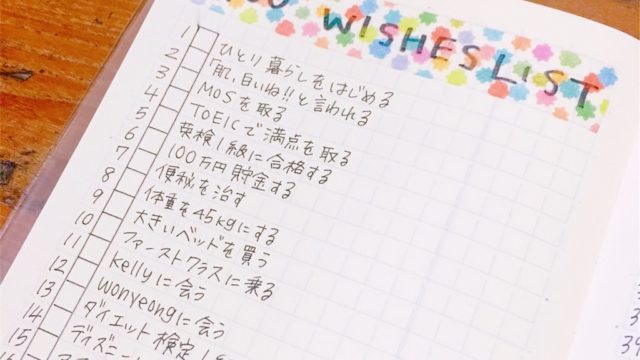 WISHES LIST
1 ひとり暮らしをはじめる
2 「肌、白いね!!」と言われる
3 MOSを取る
4 TOEICで満点を取る
5 英検1級に合格する
6 100万円貯金する
7 便秘を治す
8 体重を45kgにする
9 大きいベッドを買う
10 ファーストクラスに乗る
11 Kellyに会う
12 wonyeongに会う
13 ダイエット検定1
14 ディズニー
15